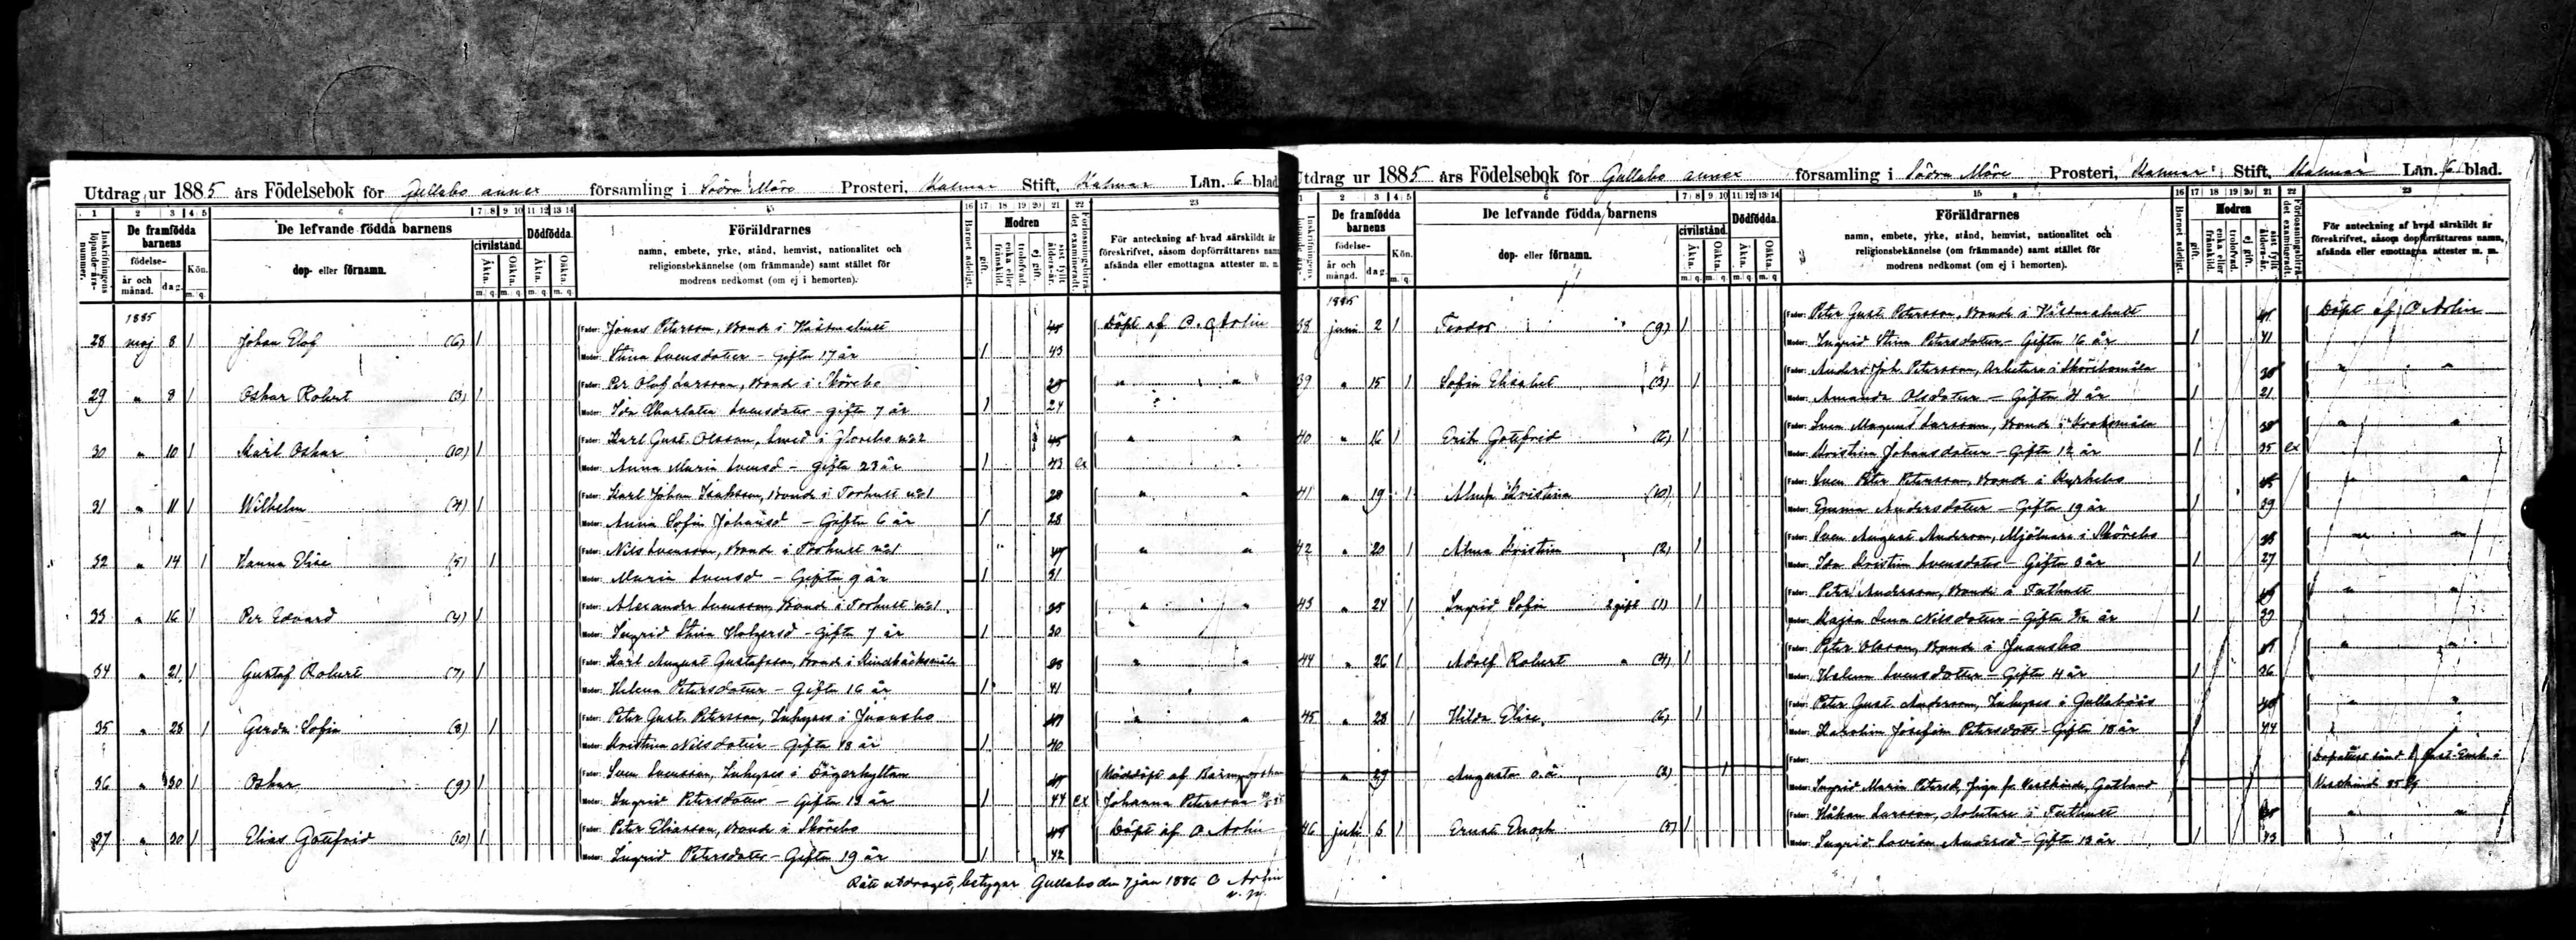 Utdrag ur 1885 års Födelsebok för Gullabo annex församling i Södra Möre Prosteri, Kalmar Stift, Kalmar Län. 6 blad
1 2 3 4 5 6 7 8 9 10 11 12 13 14 15 16 17 18 19 20 21 22 23
Inskrifningens löpande års-nummer.
De framfödda barnens
födelse-
år och månad.
dag.
Kön.
m. q.
De lefvande födda barnens
dop- eller förnamn.
civilstånd.
Äkta. Oäkta.
m. q. m. q.
Dödfödda.
Äkta. Oäkta.
m. q. m. q.
Föräldrarnes
namn, embete, yrke, stånd, hemvist, nationalitet och
religionsbekännelse (om främmande) samt stället för
modrens nedkomst (om ej i hemorten).
Barnet adeligt.
Modren
gift.
enka eller frånskild.
trolofvad.
ej gift.
sist fyllt ålders-år.
Förlossningsbiträdet examineradt.
För anteckning af hvad särskildt är
föreskrifvet, såsom dopförrättarens namn,
afsända eller emottagna attester m. m.
1885
28 maj 8 1 Johan Elof (6) 1
Fader: Jonas Peterson, Bonde i 45 Döpt af O. Arlin
Moder: Stina Svensdotter - Gifta 17 år 1 43
29 " 8 1 Oskar Robert (3) 1
Fader: Per Olof Larsson, Bonde i Skörebo " "
Moder: Ida Charlotta Svensdotter - gifta 7 år 1 24
30 " 10 1 Karl Oskar (10) 1
Fader: Karl Gust. Olsson, Smed i no 2 45 " "
Moder: Anna Maria Svensd - gifta 23 år 1 43 ex
31 " 11 1 Wilhelm (4) 1
Fader: Karl Johan Isaksson, Bonde i Torhult no 1 " "
Moder: Anna Sofia Johansd - Gifta 6 år 1 28
32 " 14 1 Hanna Elise (5) 1
Fader: Nils Svensson, Bonde i Torhult no 1 " "
Moder: Maria Svensd - Gifta 9 år 1 31
33 " 16 1 Per Edvard (4) 1
Fader: Alexander Svensson, Bonde i Torhult no 1 " "
Moder: Ingrid Stina Holgersd - Gifta 7 år 1 30
34 " 21 1 Gustaf Robert (7) 1
Fader: Karl August Gustafsson, Bonde i " "
Moder: Helena Petersdotter - Gifta 16 år 1 41
35 " 28 1 Gerda Sofia (8) 1
Fader: Peter Gust. Petersson, Inhyses i Juansbo " "
Moder: Kristina Nilsdotter - Gifta 18 år 1 40
36 " 30 1 Oskar (9) 1
Fader: Sven Svensson, Inhyses i Nöddöpt af Barnmorskan
Moder: Ingrid Petersdotter - Gifta 19 år 1 44 ex Johanna Petersson
37 " 30 1 Elias Gottfrid (10) 1
Fader: Peter Eliasson, Bonde i Skörebo Döpt af O Arlin
Moder: Ingrid Petersdotter - Gifta 19 år 1 42
Rätt utdraget, betygar Gullabo den 7 jan 1886 O Arlin
v. p.
Utdrag ur 1885 års Födelsebok för Gullabo annex församling i Södra Möre Prosteri, Kalmar Stift, Kalmar Län. 6 blad.
1 2 3 4 5 6 7 8 9 10 11 12 13 14 15 16 17 18 19 20 21 22 23
Inskrifningens löpande års-
De framfödda barnens
födelse-
år och månad.
dag.
Kön.
m. q.
De lefvande födda barnens
dop- eller förnamn.
civilstånd.
Äkta. Oäkta.
m. q. m. q.
Dödfödda.
Föräldrarnes
namn, embete, yrke, stånd, hemvist, nationalitet och
religionsbekännelse (om främmande) samt stället för
modrens nedkomst (om ej i hemorten).
Barnet adeligt.
Modren
gift.
enka eller frånskild.
trolofvad.
ej gift.
sist fyllt ålders-år.
Förlossningsbiträdet examineradt.
För anteckning af hvad särskildt är
föreskrifvet, såsom dopförrättarens namn,
afsända eller emottagna attester m. m.
1885
38 juni 2 1 Teodor (9) 1
Fader: Peter Gust Petersson, Bonde i Döpt af O Arlin
Moder: Ingrid Stina Petersdotter - Gifta 16 år 1 41
39 " 15 1 Sofia Elisabet (3) 1
Fader: Anders Joh. Petersson, Arbetare i Skörebomåla " "
Moder: Amanda Olsdotter - Gifta 4 år 1 21
40 " 16 1 Erik Gottfrid (6) 1
Fader: Sven Magnus Larsson, Bonde i " "
Moder: Kristina Johansdotter - Gifta 12 år 1 35 ex
41 " 19 1 Alma Kristina (10) 1
Fader: Sven Peter Petersson, Bonde i Kyrkebo " "
Moder: Emma Andersdotter - Gifta 19 år 1 39
42 " 20 1 Alma Kristina (2) 1
Fader: Sven August Andersson, Mjölnare i Skörebo " "
Moder: Ida Kristina Svensdotter - Gifta 3 år 1 27
43 " 24 1 Ingrid Sofia 2 gift (1) 1
Fader: Peter Andersson, Bonde i " "
Moder: Kajsa Lena Nilsdotter - Gifta år 1
44 " 26 1 Adolf Robert " (4) 1
Fader: Peter Olsson, Bonde i Juansbo " "
Moder: Helena Svensdotter - Gifta 4 år 1 36
45 " 28 1 Hilda Elise. (6) 1
Fader: Peter Gust. Andersson, Inhyses i Gullaboås " "
Moder: Karolina Josefina Petersdotter Gifta 18 år 1 44
" 29 Augusta o.ä. (2) 1
Fader:
Moder: Ingrid Maria Petersd, piga fr. Vestkinde, Gotland
46 juli 6 1 Ernst Enoch (5) 1
Fader: Håkan Larsson, Arbetare i " "
Moder: Ingrid Lovisa Andersd - Gifta 13 år 1 43